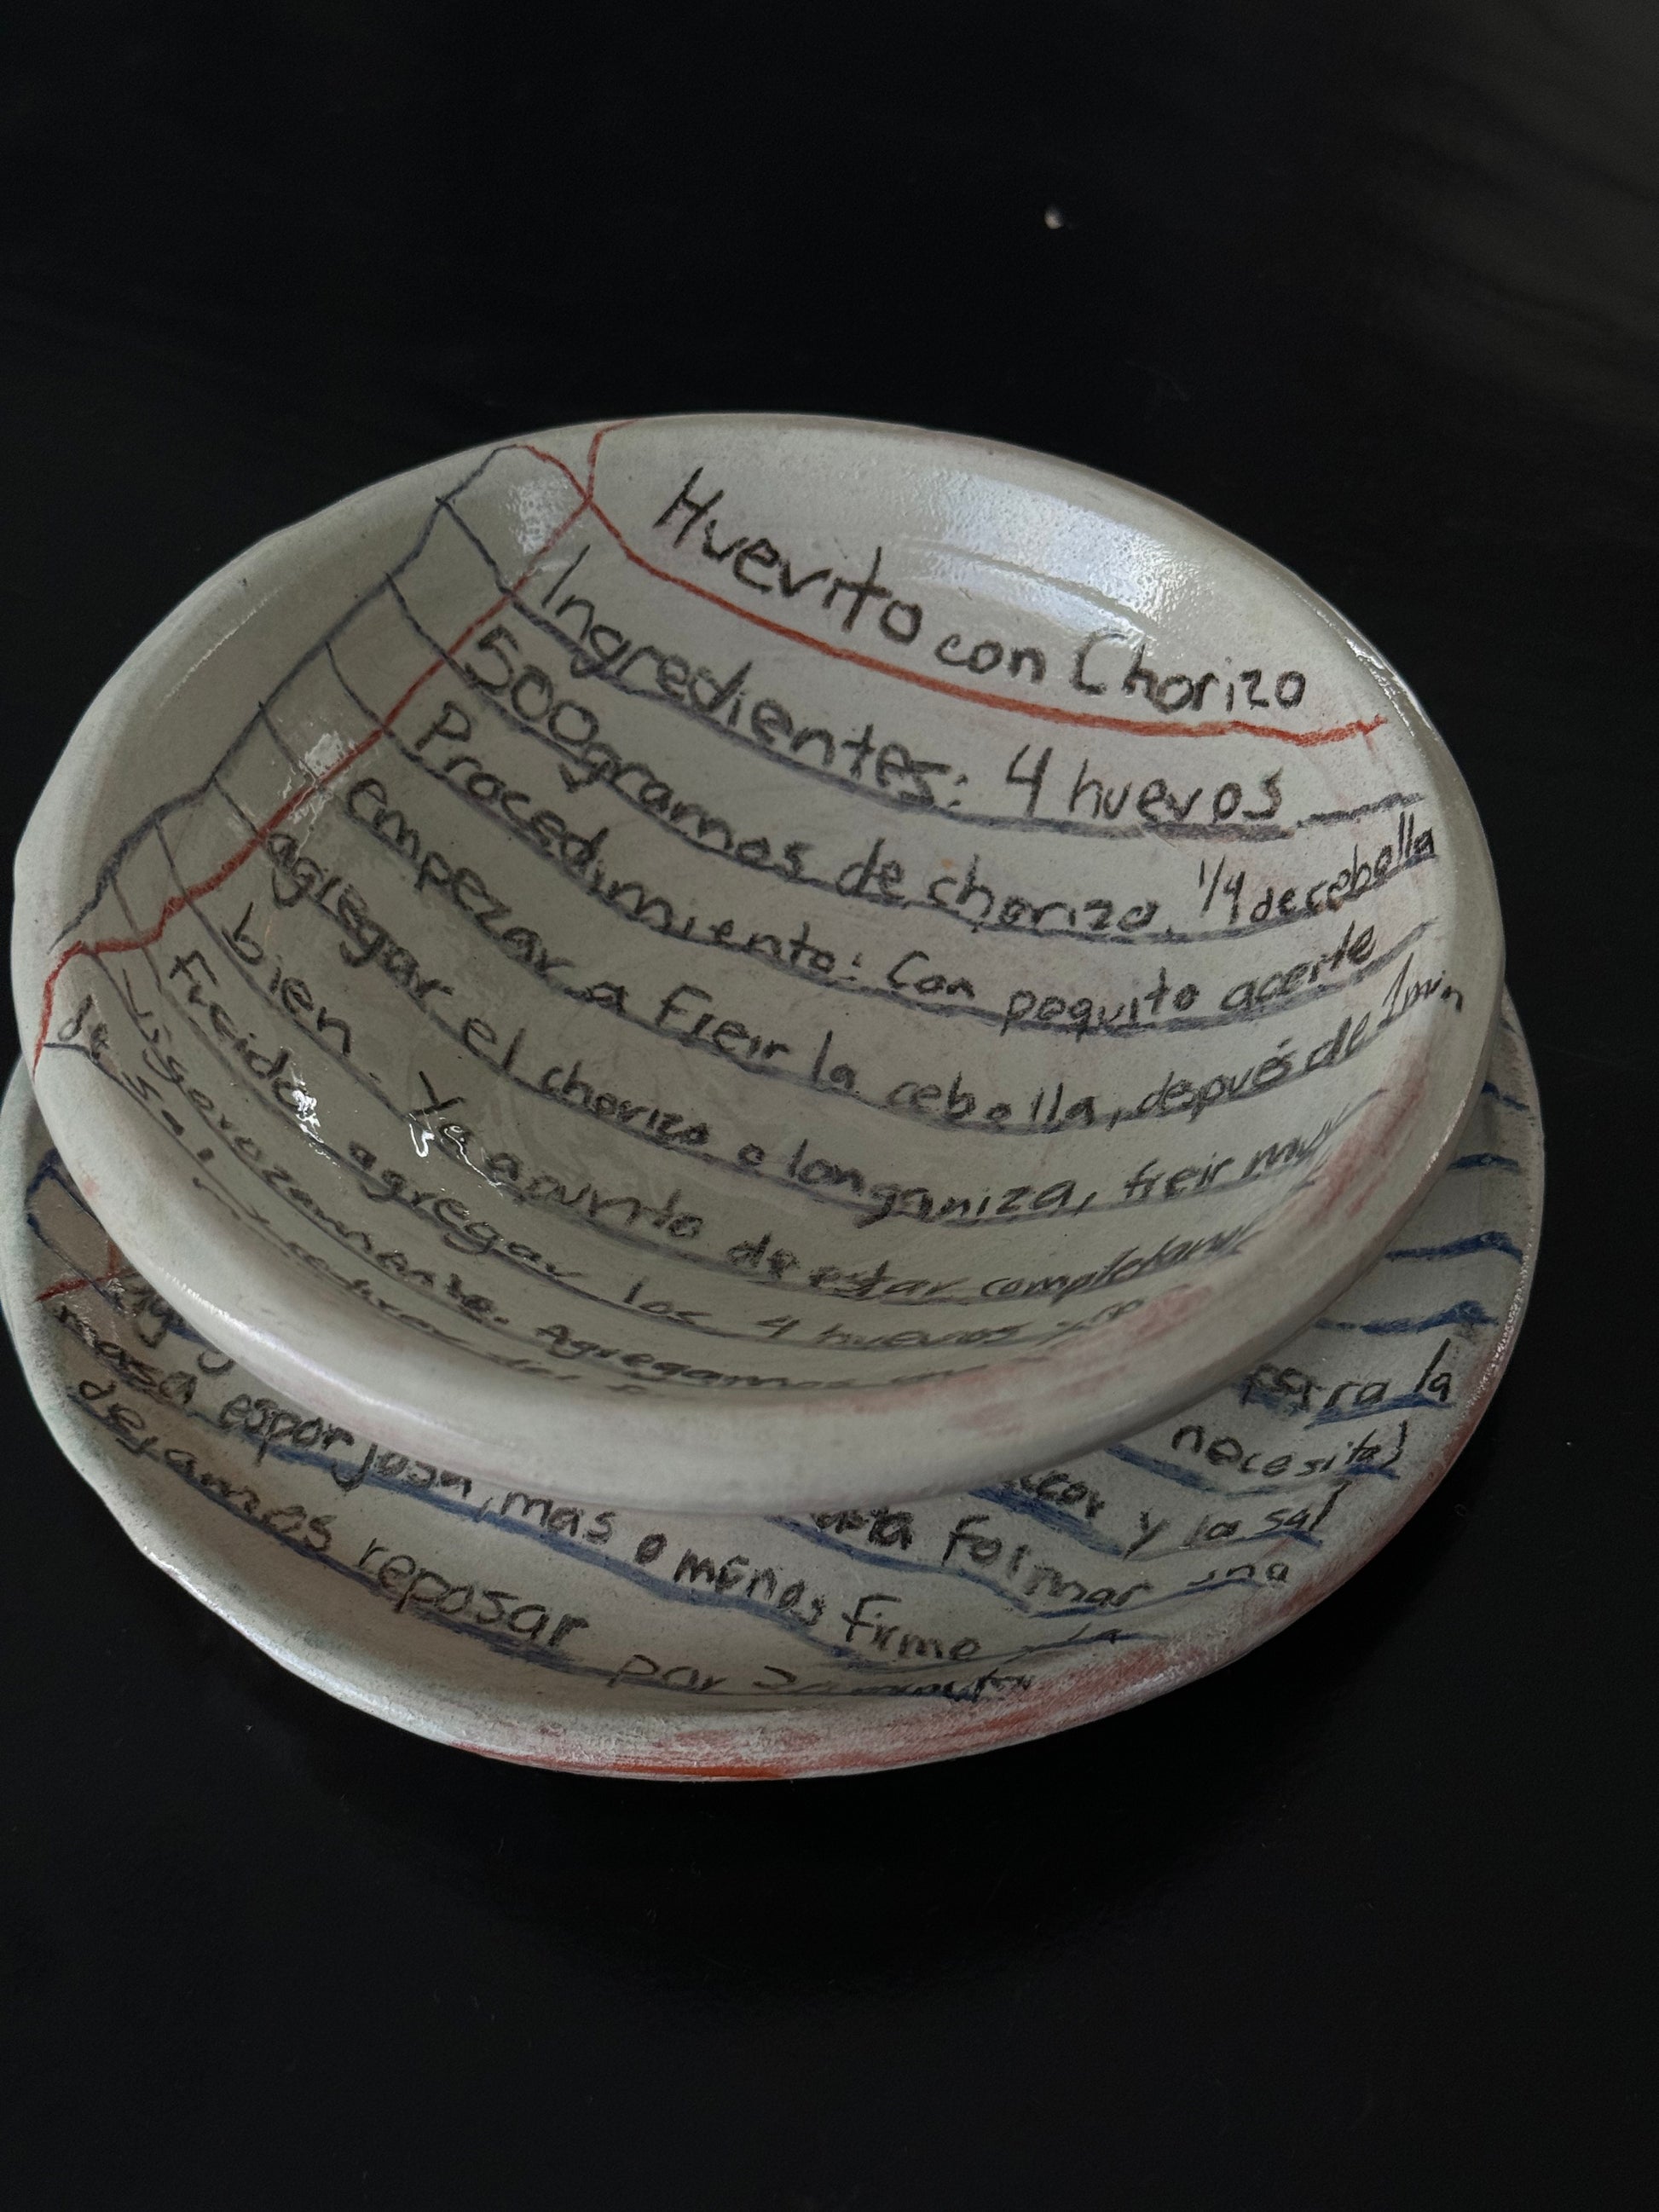 Huevito con Chorizo
Ingredientes: 4 huevos
500gramos de chorizo, 1/4 de cebolla
Procedimiento: Con poquito aceite
empezar a freir la cebolla, después de 1min
agregar el chorizo o longaniza, freir muy
bien. Ya apunto de estar
Freido agregar los 4 huevos
vigorozamente. Agregamos
de sal
para la
necesita)
y la sal
Formar una
masa esponjosa, mas o menos firme la
dejamos reposar por